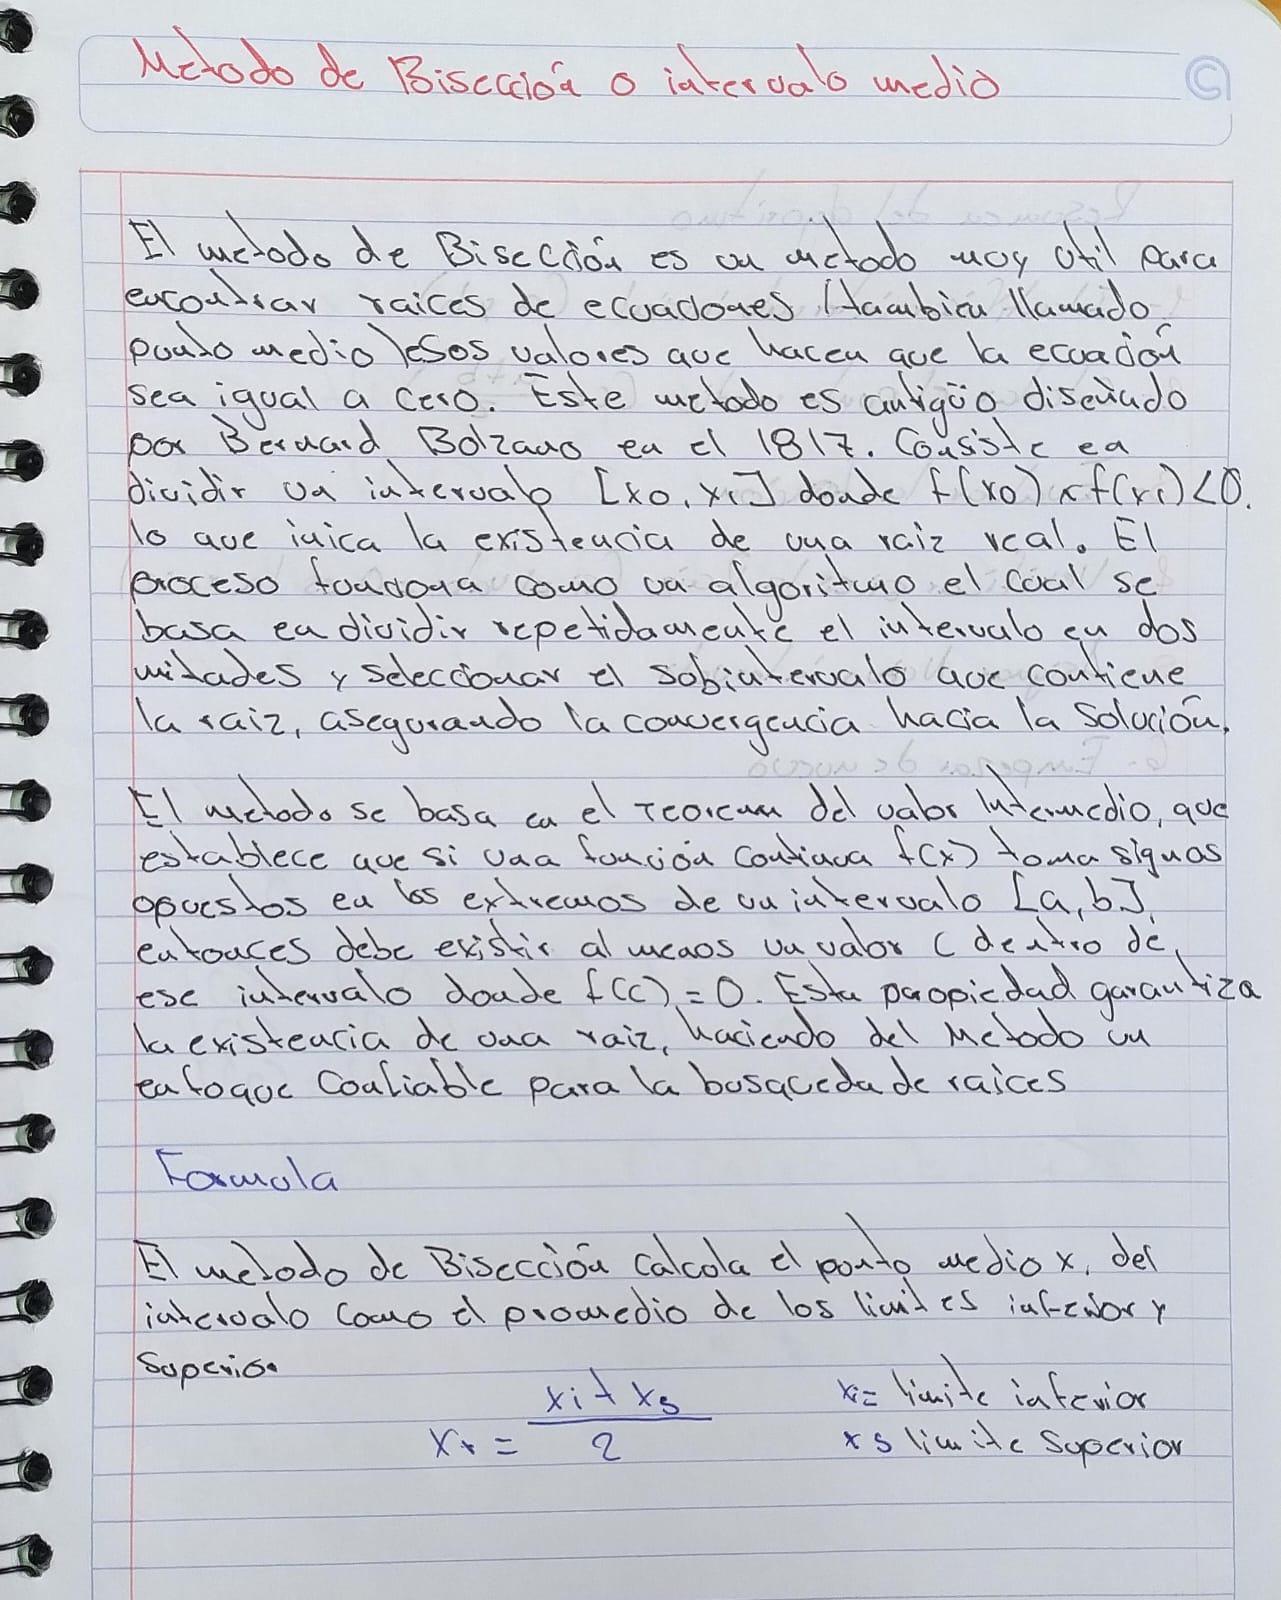 Metodo de Bisección o intervalo medio
El metodo de Bisección es un metodo muy útil para
encontrar raices de ecuaciones (tambien llamado
punto medio) esos valores que hacen que la ecuación
sea igual a cero. Este metodo es antigüo diseñado
por Bernard Bolzano en el 1817. Consiste en
dividir un intervalo [x0, x1] donde f(x0) x f(x1) < 0.
lo que inica la existencia de una raiz real. El
proceso funciona como un algoritmo el cual se
basa en dividir repetidamente el intervalo en dos
mitades y seleccionar el subintervalo que contiene
la raiz, asegurando la convergencia hacia la Solución.
El metodo se basa en el Teorema del valor Intermedio, que
establece que si una función continua f(x) toma signos
opuestos en los extremos de un intervalo [a, b],
entonces debe existir al menos un valor c dentro de
ese intervalo donde f(c) = 0. Esta propiedad garantiza
la existencia de una raiz, haciendo del Metodo un
enfoque confiable para la busqueda de raices
Formula
El metodo de Bisección calcula el punto medio x, del
intervalo como el promedio de los limites inferior y
Superior
xr = xi + xs / 2
xi = limite inferior
xs limite Superior